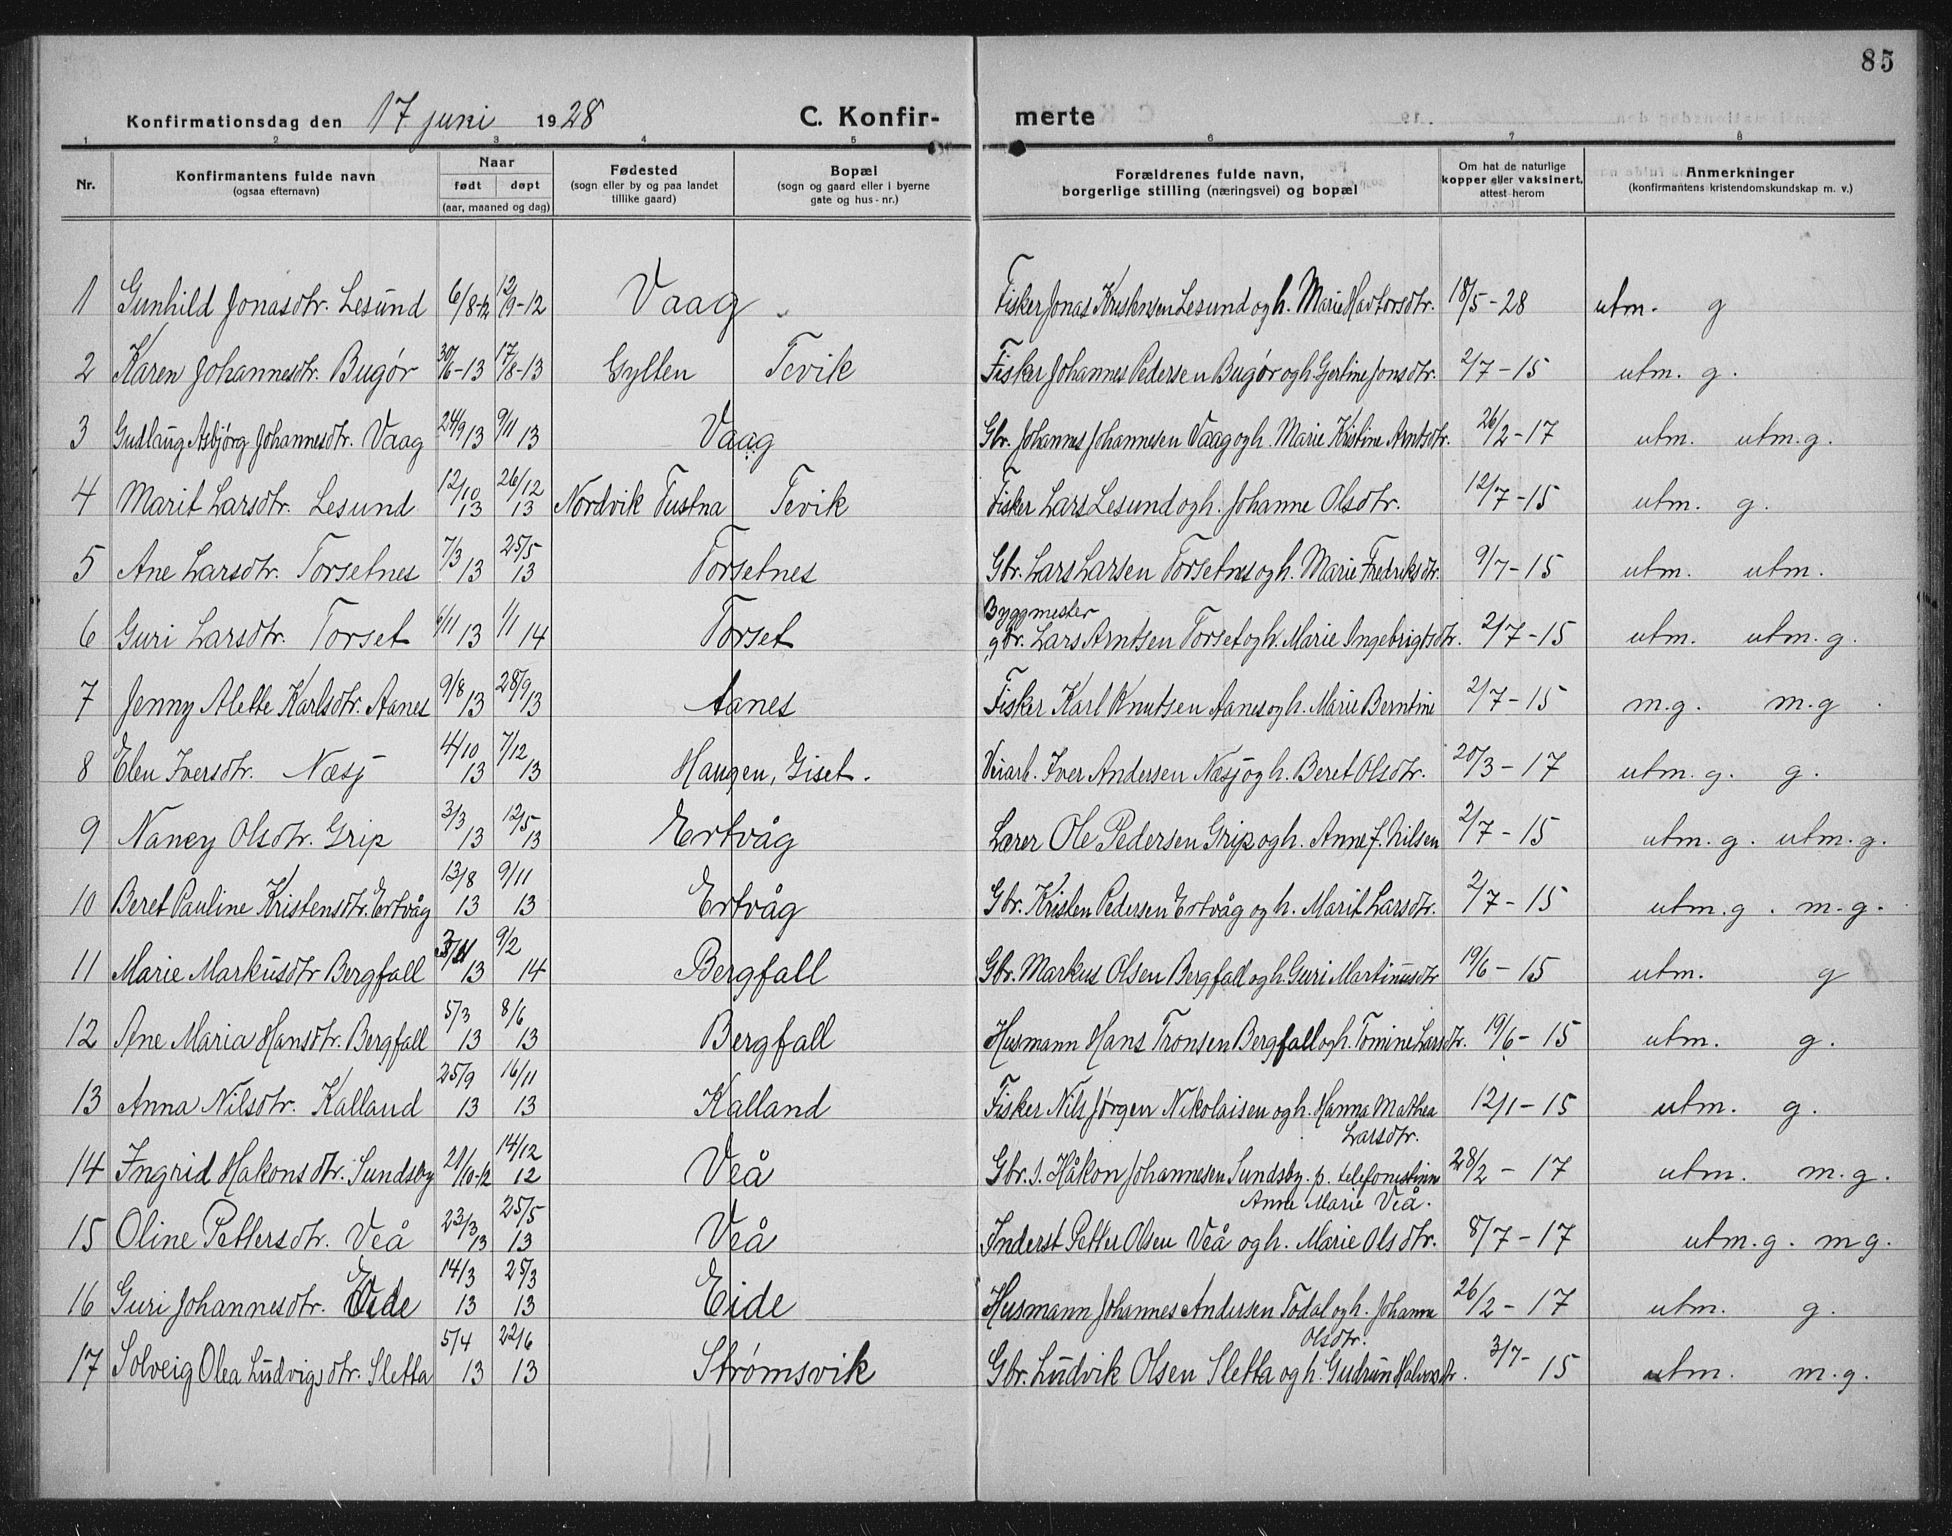 85
Konfirmationsdag den 17 juni 1928 C. Konfir- merte
1 2 3 4 5 6 7 8
Nr. Konfirmantens fulde navn (ogsaa efternavn) Naar født døpt (aar, maaned og dag) Fødested (sogn eller by og paa landet tillike gaard) Bopæl (sogn og gaard eller i byerne gate og hus-nr.) Forældrenes fulde navn, borgerlige stilling (næringsvei) og bopæl Om hat de naturlige kopper eller vaksinert, attest herom Anmerkninger (konfirmantens kristendomskundskap m. v.)
1 Gunhild Jonasdtr. Lesund 6/8-12 12/9-12 Vaag Fisker Jonas Kristensen Lesund og h. Marie Havtorsdtr. 18/5-28 utm. g
2 Karen Johannesdtr. Bugør 30/6-13 17/8-13 Gylten Tevik Fisker Johannes Pedersen Bugør og h. Gjertine Jonsdtr. 2/7-15 utm. g.
3 Gudlaug Asbjørg Johannesdtr. Vaag 24/9 13 9/11 13 Vaag Gbr. Johannes Johannesen Vaag og h. Marie Kristine Arntsdtr. 26/2-17 utm. utm.g.
4 Marit Larsdtr. Lesund 12/10 13 26/12 13 Nordvik Tustna Tevik Fisker Lars Lesund og h. Johanne Olsdtr. 12/7-15 utm. g.
5 Ane Larsdtr. Torsetnes 7/3 13 25/5 13 Torsetnes Gbr. Lars Larsen Torsetnes og h. Marie Fredriksdtr. 9/7-15 utm. utm.
6 Guri Larsdtr. Torset 6/11 13 1/1 14 Torset Byggmester gbr. Lars Arntsen Torset og h. Marie Ingebrigtsdtr. 2/7-15 utm. utm.g.
7 Jenny Alette Karlsdtr. Aanes 9/8 13 28/9 13 Aanes Fisker Karl Knutsen Aanes og h. Marie Berntine 2/7-15 m.g. m.g.
8 Elen Iversdtr. Næsj 4/10 13 7/12 13 Haugen, Giset. Veiarb. Iver Andersen Næsj og h. Beret Olsdtr. 20/3-17 utm.g. g.
9 Nancy Olsdtr. Grip 3/3 13 12/5 13 Ertvåg Lærer Ole Pedersen Grip og h. Anne f. Nilsen 2/7-15 utm.g. utm.g.
10 Beret Pauline Kristensdtr. Ertvåg 13/8 13 9/11 13 Ertvåg Gbr. Kristen Pedersen Ertvåg og h. Marit Larsdtr. 2/7-15 utm.g. m.g.
11 Marie Markusdtr Bergfall 13 9/2 14 Bergfall Gbr. Markus Olsen Bergfall og h. Guri Martinusdtr 19/6-15 utm. g
12 Ane Maria Hansdtr. Bergfall 5/3 13 8/6 13 Bergfall Husmann Hans Tronsen Bergfall og h. Tomine Larsdtr. 19/6-15 utm. g.
13 Anna Nilsdtr. Kalland 25/9 13 16/11 13 Kalland Fisker Nils Jørgen Nikolaisen og h. Hanna Mathea Larsdtr. 12/1-15 utm. g.
14 Ingrid Hakonsdtr. Sundsby 21/10-12 14/12 12 Veå Gbr. s. Håkon Johannesen Sundsby. p. telefonistinne Anne Marie Veå. 28/2-17 utm. m.g.
15 Oline Pettersdtr. Veå 23/3 13 25/5 13 Veå Inderst Petter Olsen Veå og h. Marie Olsdtr. 8/7-17 utm.g. mg.
16 Guri Johannesdtr. Eide 14/3 13 25/3 13 Eide Husmann Johannes Andersen Todal og h. Johanna Olsdtr. 26/2-17 utm. g.
17 Solveig Olea Ludvigsdtr. Sletta 5/4 13 22/6 13 Strømsvik Gbr. Ludvik Olsen Sletta og h. Gudrun Halvorsdtr. 3/7-15 utm. m.g.